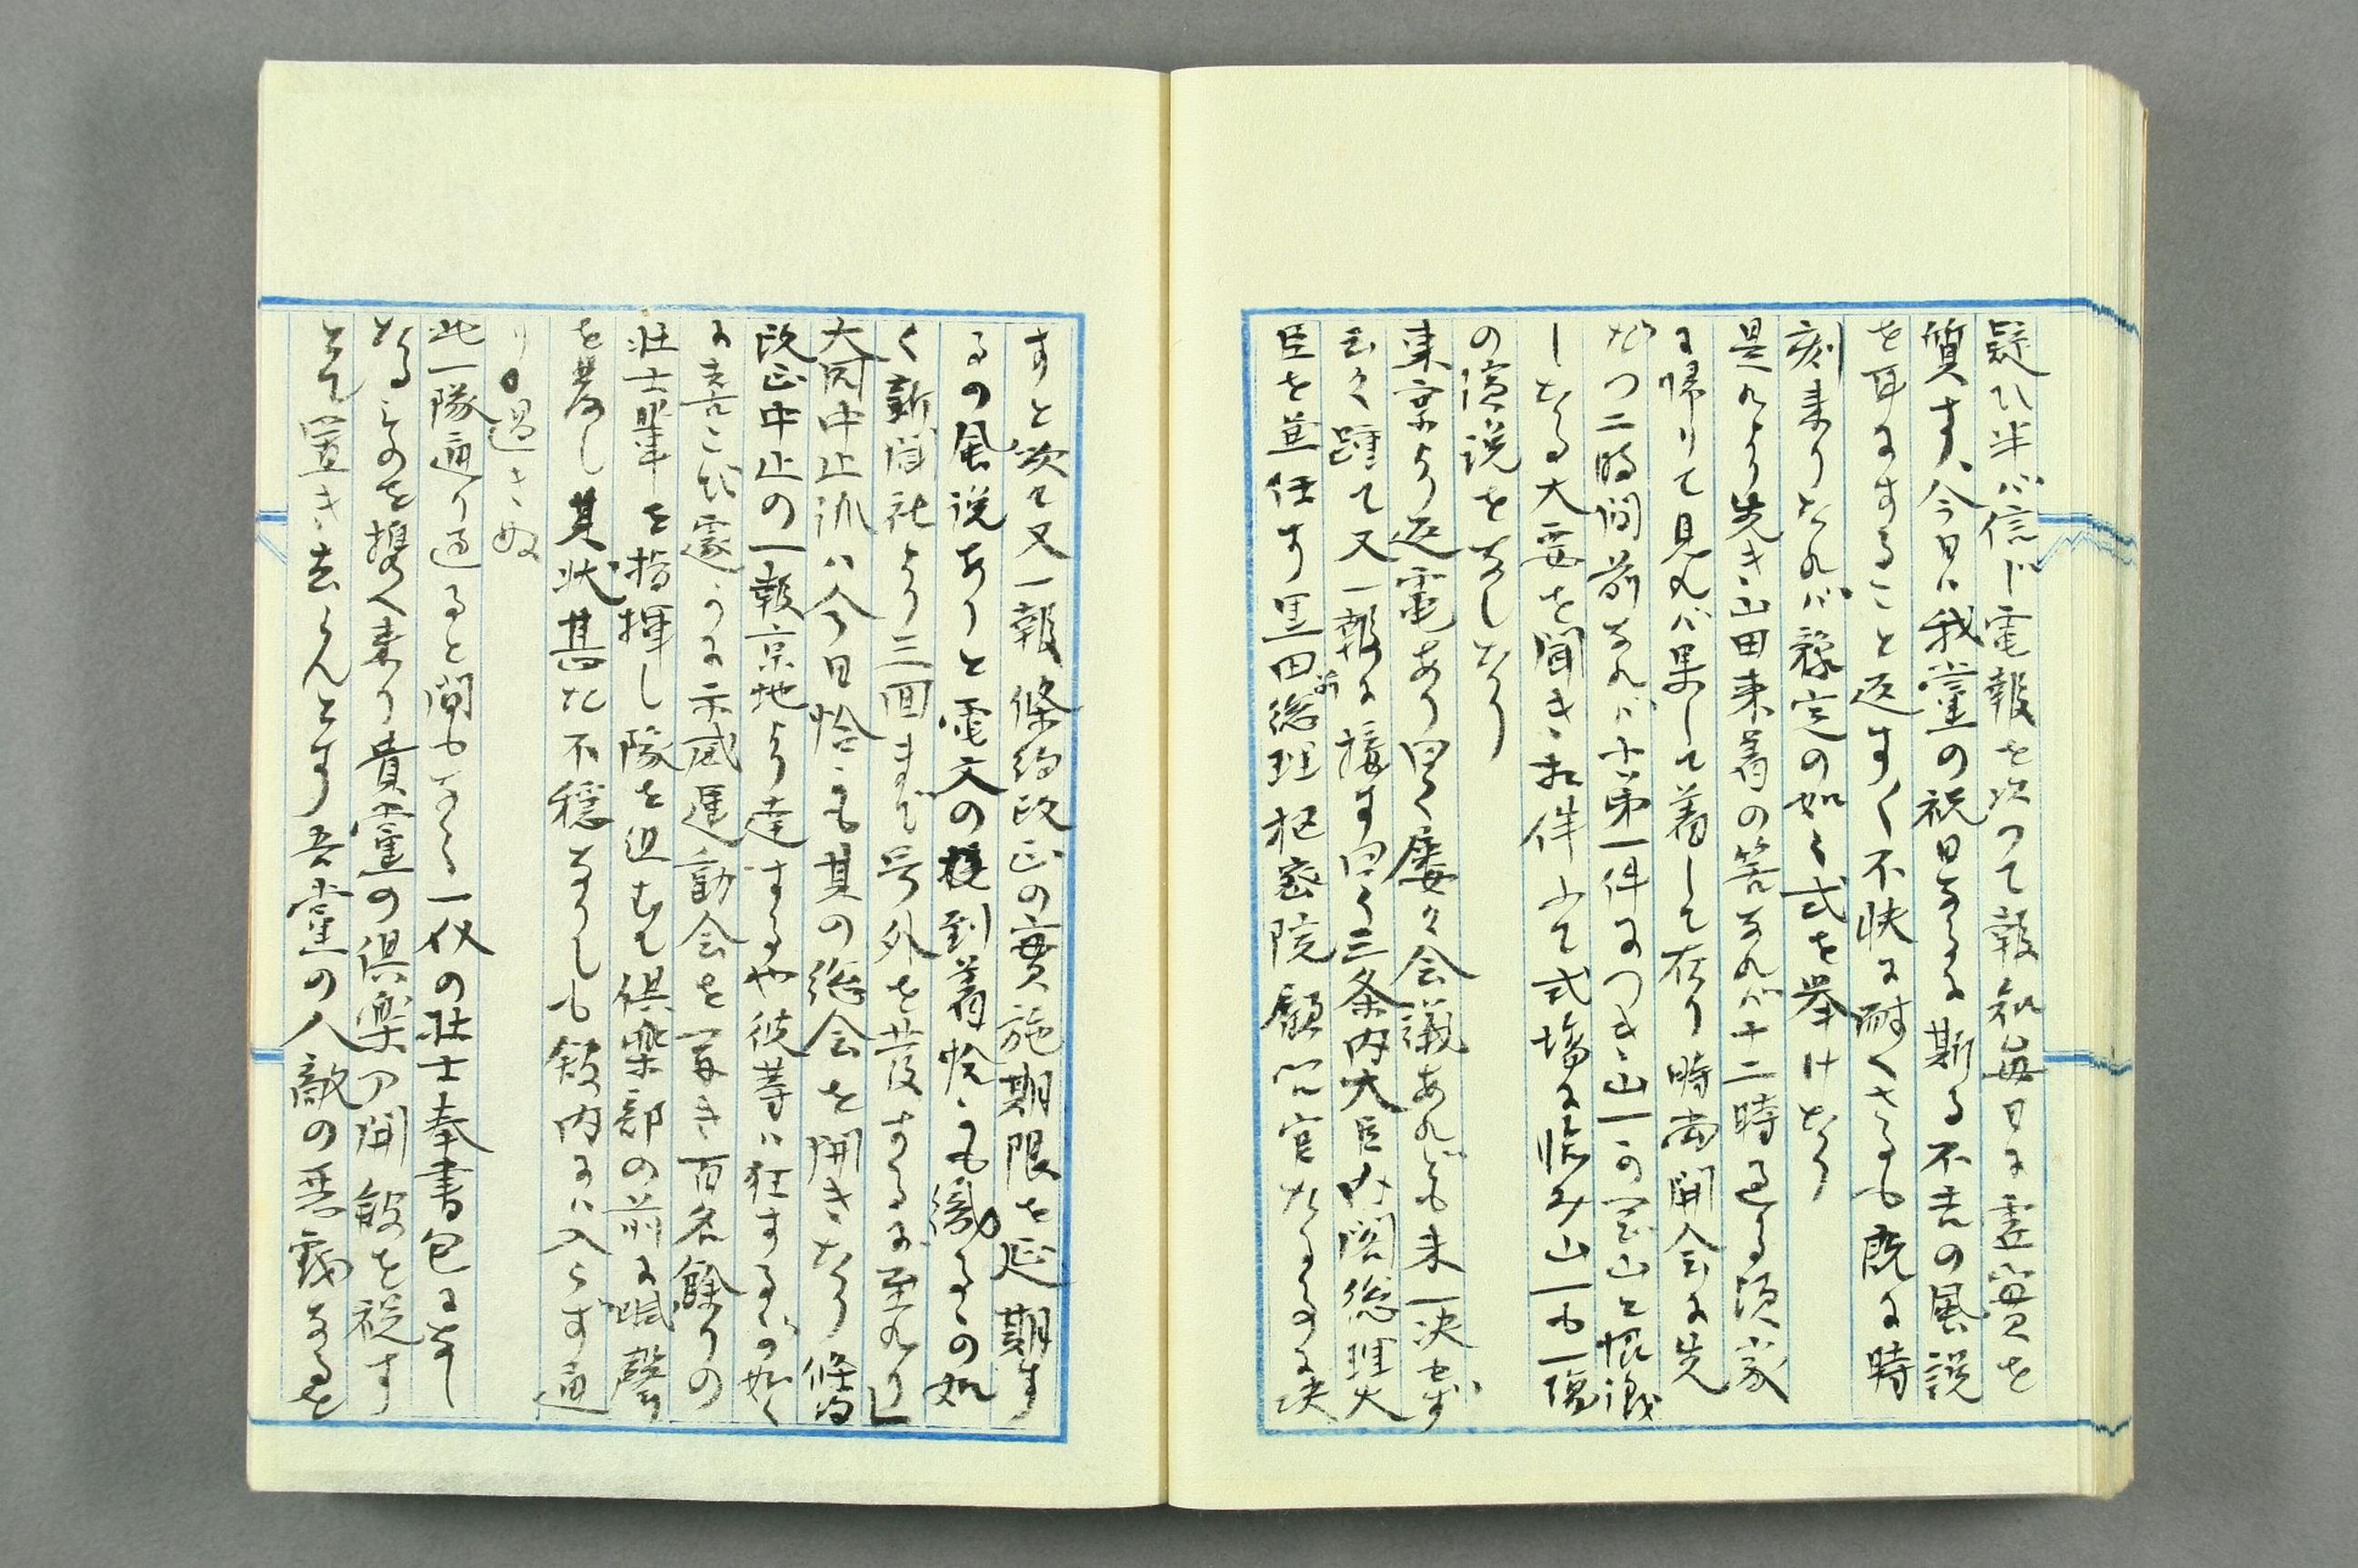 疑ひ半バ信じ電報を次つて報知毎日に虚實を
質す、今日ハ我黨の祝日なるに斯る不吉の風説
を耳にすること返すく不快に耐へさるも既に時
刻来りたれバ豫定の如く式を挙けたり
是れより先き山田来着の筈なれバ十二時過る頃家
に帰りて見れバ果して着して在り時尚開会に先
だつ二時間前なれバ小第一件につき山一の富山と恨誠
しなる大要を聞き相伴ふて式場に臨み山一も一場
の演説をなしたり
東京より返電あり曰く屡々会議あれども未一決せず
云々踵て又一報に接す曰く三条内大臣内閣総理大
臣を兼任す黒田前総理枢密院顧問官たるものに決
すと次て又一報條約改正の實施期限を延期す
るの風説ありと電文の接到着恰も織るもの如
く新聞社より三回まで号外を発するに至れり
大同中止派ハ今日恰も其の総会を開きたり條約
改正中止の一報京地より達するや彼等ハ狂するが如く
に喜こび遽かに示威運動会を開き百名餘りの
壮士輩を指揮し隊を組むて倶楽部の前に吶聲
を発し其状甚た不穏なりしも館内にハ入らず通
り過きぬ
此一隊通り過ると間もなく一人の壮士奉書包になし
たるものを携へ来り貴黨の倶楽部開館を祝す
とて置き去らんとす吾黨の人敵の悪戯なるを